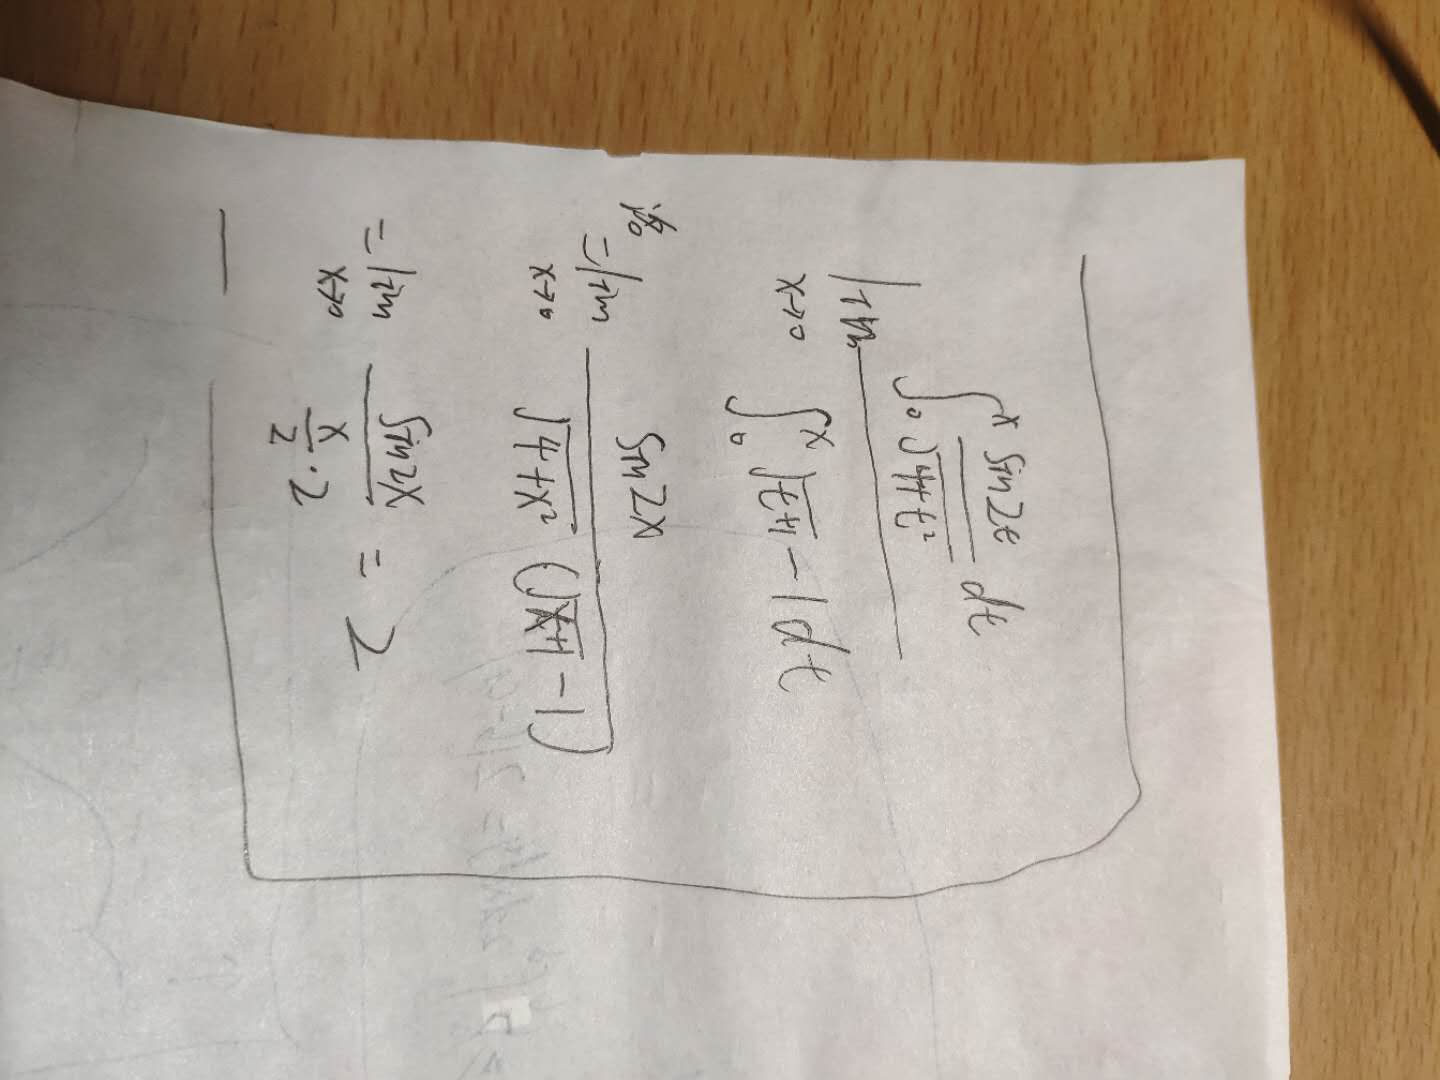 lim_{x→0} \frac{∫_0^x \frac{sin2t}{√(4+t²)} dt}{∫_0^x √(t+1) - 1 dt}
洛
= lim_{x→0} \frac{sin2x}{√(4+x²) (√(x+1) - 1)}
= lim_{x→0} \frac{sin2x}{\frac{x}{2}·2} = 2